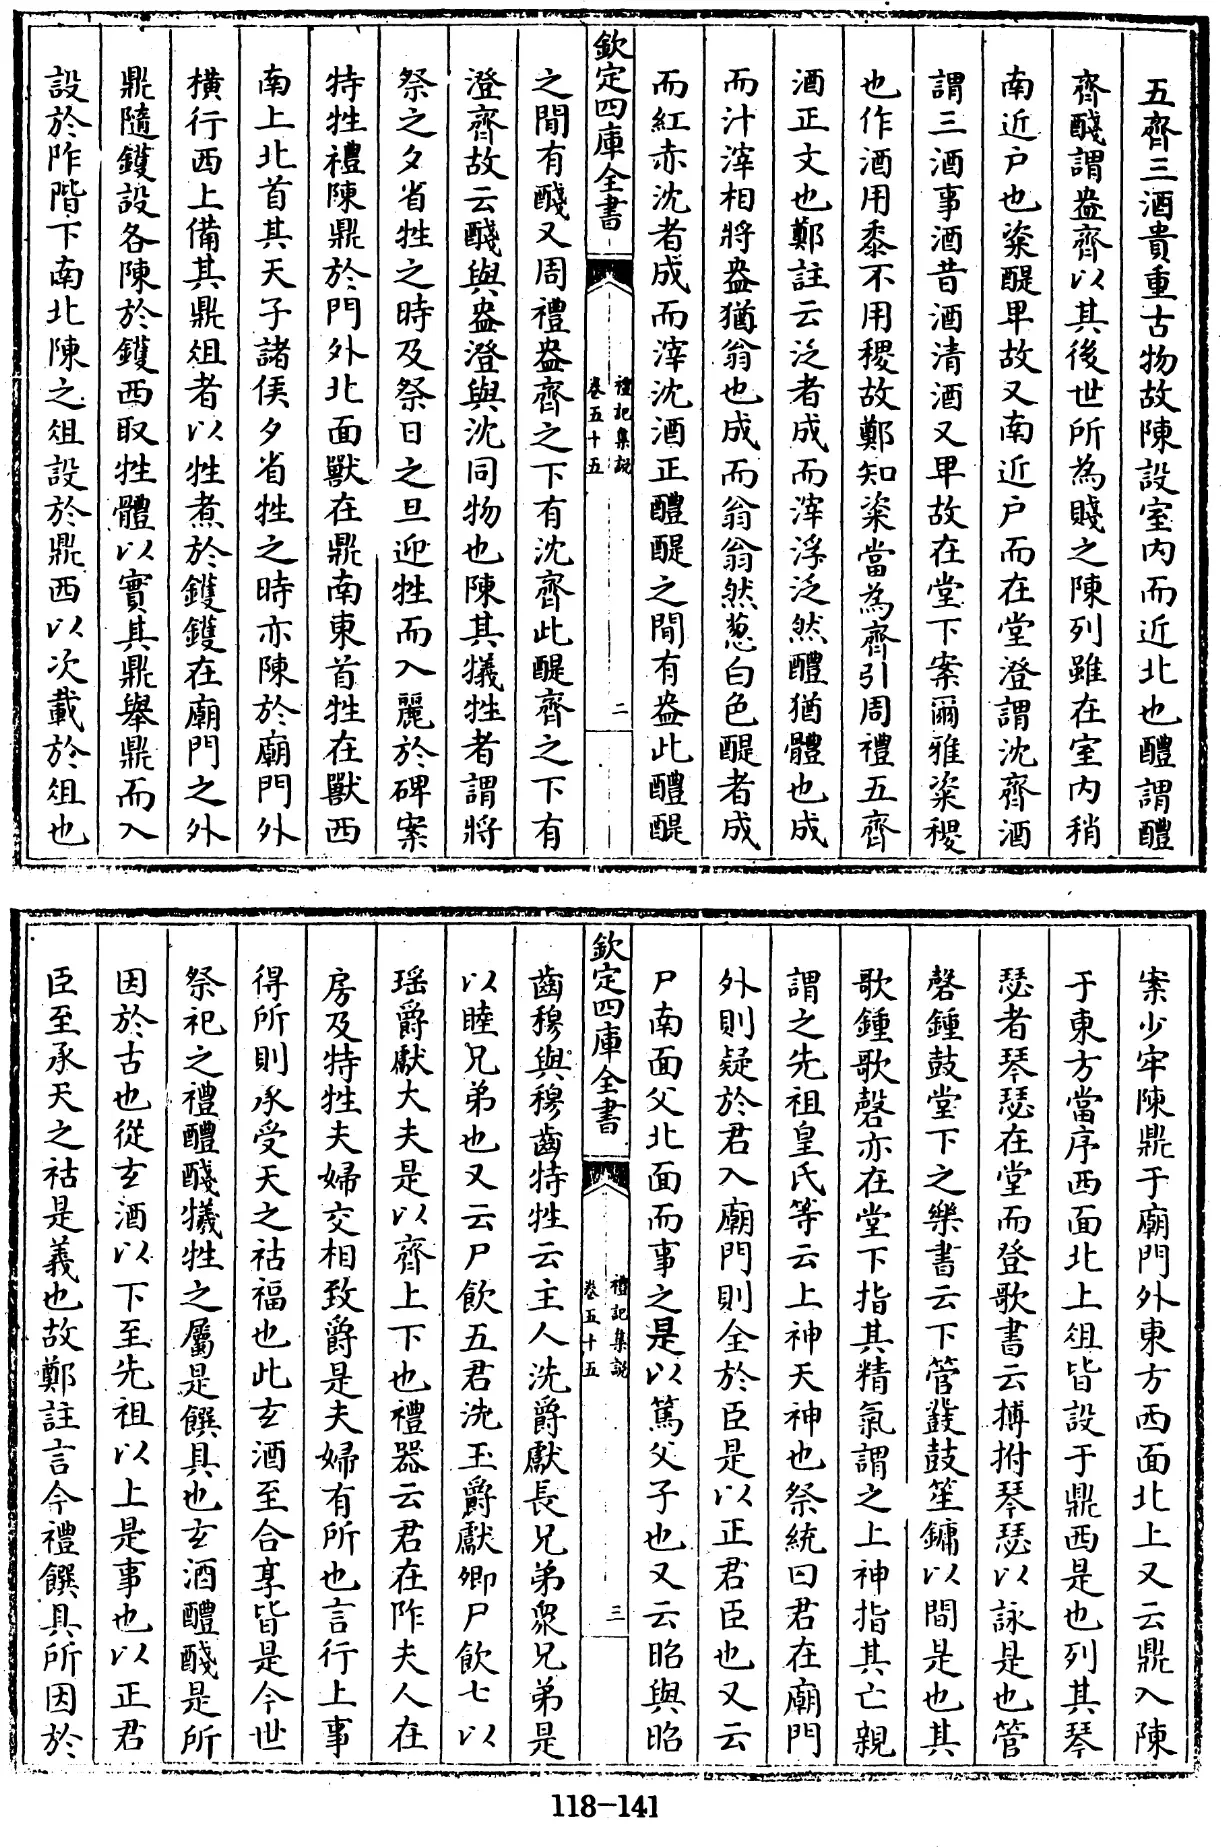 五齊三酒貴重古物故陳設室内而近北也醴謂醴
齊醆謂盎齊以其後世所為賤之陳列雖在室内稍
南近户也粢醍卑故又南近户而在堂澄謂沈齊酒
謂三酒事酒昔酒清酒又卑故在堂下案爾雅粢稷
也作酒用黍不用稷故鄭知粢當為齊引周禮五齊
酒正文也鄭註云泛者成而滓浮泛泛然醴猶體也成
而汁滓相將盎猶翁也成而翁翁然葱白色醍者成
而紅赤沈者成而滓沈酒正醴醍之間有盎此醴醍
欽定四庫全書
禮記集說
卷五十五
二
之間有醆又周禮盎齊之下有沈齊此醍齊之下有
澄齊故云醆與盎澄與沈同物也陳其犧牲者謂將
祭之夕省牲之時及祭日之旦迎牲而入麗於碑案
特牲禮陳鼎於門外北面獸在鼎南東首牲在獸西
南上北首其天子諸侯夕省牲之時亦陳於廟門外
橫行西上備其鼎俎者以牲煮於鑊鑊在廟門之外
鼎隨鑊設各陳於鑊西取牲體以實其鼎舉鼎而入
設於阼階下南北陳之俎設於鼎西以次載於俎也
案少牢陳鼎于廟門外東方西面北上又云鼎入陳
于東方當序西面北上俎皆設于鼎西是也列其琴
瑟者琴瑟在堂而登歌書云搏拊琴瑟以詠是也管
磬鍾鼓堂下之樂書云下管鼗鼓笙鏞以間是也其
歌鍾歌磬亦在堂下指其精氣謂之上神指其亡親
謂之先祖皇氏等云上神天神也祭統曰君在廟門
外則疑於君入廟門則全於臣是以正君臣也又云
尸南面父北面而事之是以篤父子也又云昭與昭
欽定四庫全書
禮記集說
卷五十五
三
齒穆與穆齒特牲云主人洗爵獻長兄弟衆兄弟是
以睦兄弟也又云尸飲五君洗玉爵獻卿尸飲七以
瑶爵獻大夫是以齊上下也禮器云君在阼夫人在
房及特牲夫婦交相致爵是夫婦有所也言行上事
得所則承受天之祜福也此玄酒至合享皆是今世
祭祀之禮醴醆犧牲之屬是饌具也玄酒醴醆是所
因於古也從玄酒以下至先祖以上是事也以正君
臣至承天之祜是義也故鄭註言今禮饌具所因於
118-141